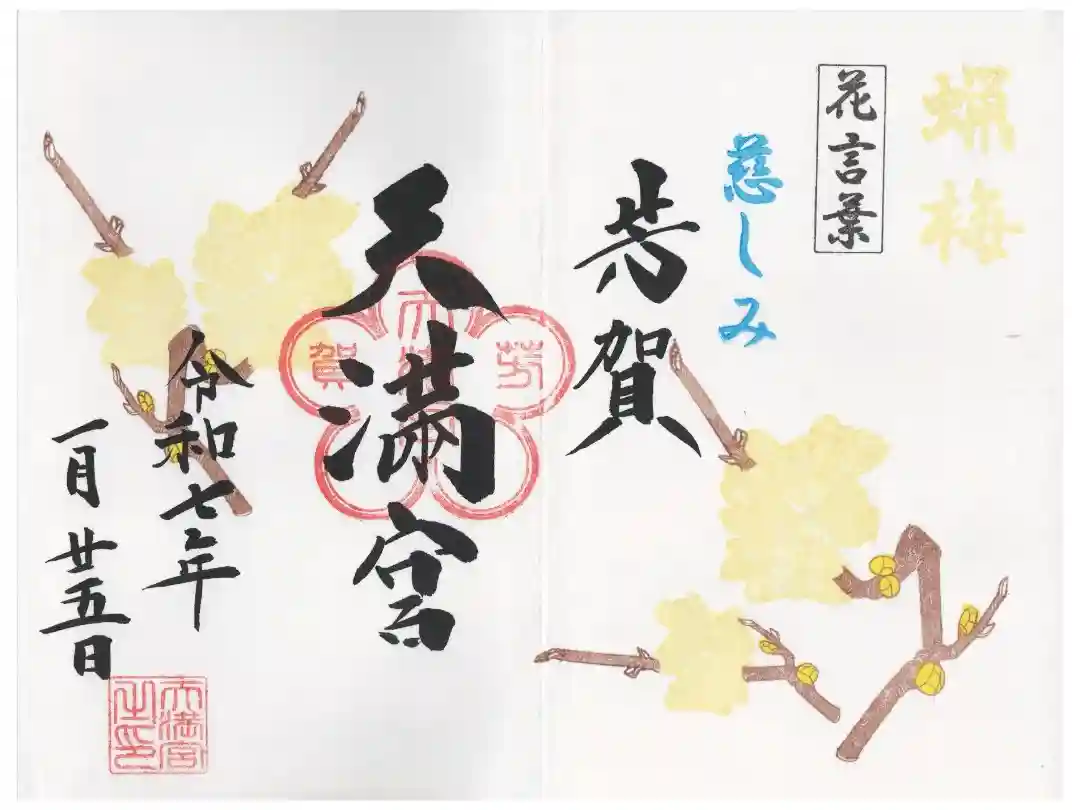 蝋梅
花言葉
慈しみ
芳賀
天満宮
令和七年
一月廿五日
天満宮
芳賀
天満宮之印